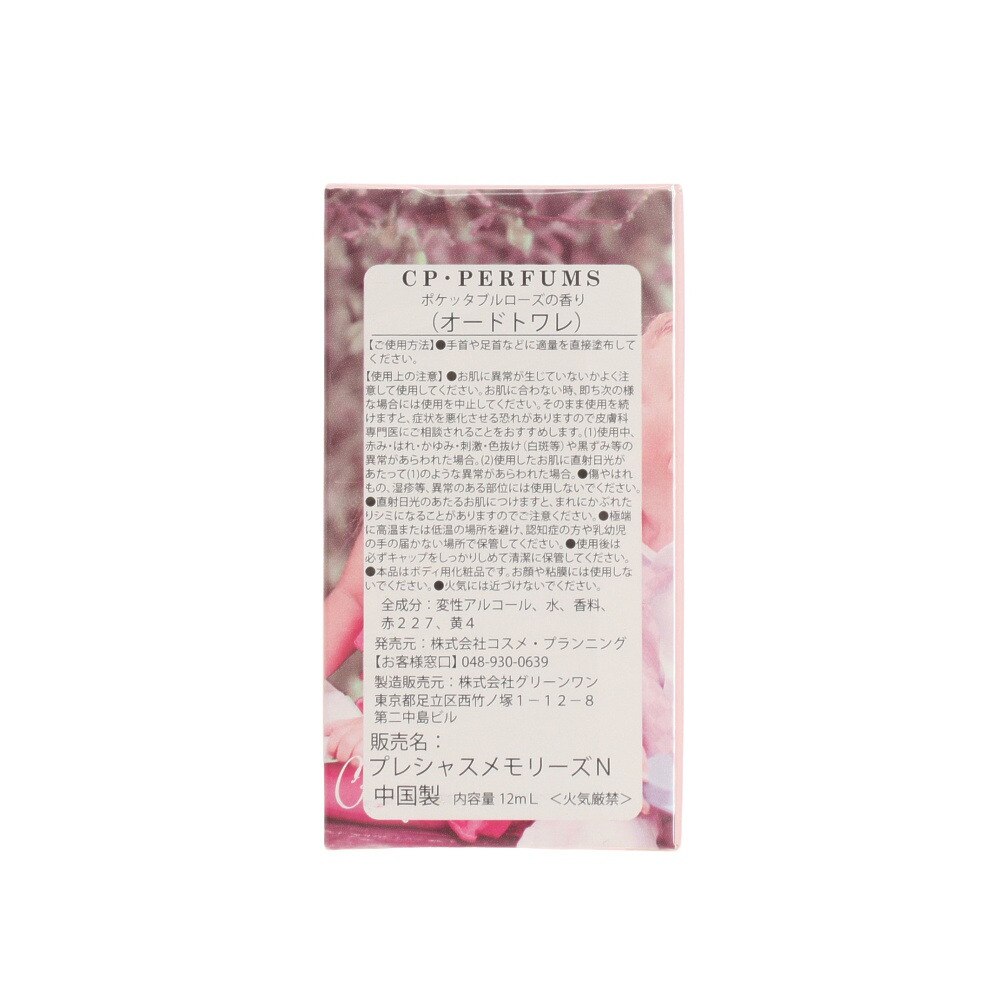 CP・PERFUMS
ポケッタブルローズの香り
（オードトワレ）
【ご使用方法】●手首や足首などに適量を直接塗布して
ください。
【使用上の注意】●お肌に異常が生じていないかよく注
意して使用してください。お肌に合わない時、即ち次の様
な場合には使用を中止してください。そのまま使用を続
けますと、症状を悪化させる恐れがありますので皮膚科
専門医にご相談されることをおすすめします。(1)使用中、
赤み・はれ・かゆみ・刺激・色抜け（白斑等）や黒ずみ等の
異常があらわれた場合。(2)使用したお肌に直射日光が
あたって(1)のような異常があらわれた場合。●傷やはれ
もの、湿疹等、異常のある部位には使用しないでください。
●直射日光のあたるお肌につけますと、まれにかぶれた
りシミになることがありますのでご注意ください。●極端
に高温または低温の場所を避け、認知症の方や乳幼児
の手の届かない場所で保管してください。●使用後は
必ずキャップをしっかりしめて清潔に保管してください。
●本品はボディ用化粧品です。お顔や粘膜には使用しな
いでください。●火気には近づけないでください。
全成分：変性アルコール、水、香料、
赤２２７、黄４
発売元：株式会社コスメ・プランニング
【お客様窓口】048-930-0639
製造販売元：株式会社グリーンワン
東京都足立区西竹ノ塚１－１２－８
第二中島ビル
販売名：
プレシャスメモリーズＮ
中国製 内容量 12ｍＬ ＜火気厳禁＞